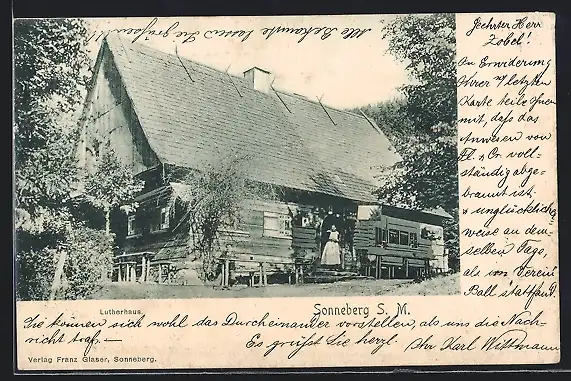 Alle Bekannte lassen Sie grüßen
Geehrter Herr
Zobel!
In Erwiderung
Ihrer letzten
Karte teile Ihnen
mit, daß das
Anwesen von
Fl. & Or. voll-
ständig abge-
brannt ist.
& unglücklicher
weise an dem-
selben Tage,
als im Verein
Ball stattfand.
Lutherhaus.
Sonneberg S. M.
Sie können sich wohl das Durcheinander vorstellen, als uns die Nach-
richt traf.—
Es grüßt Sie herzl. Ihr Karl Wittmann
Verlag Franz Glaser, Sonneberg.